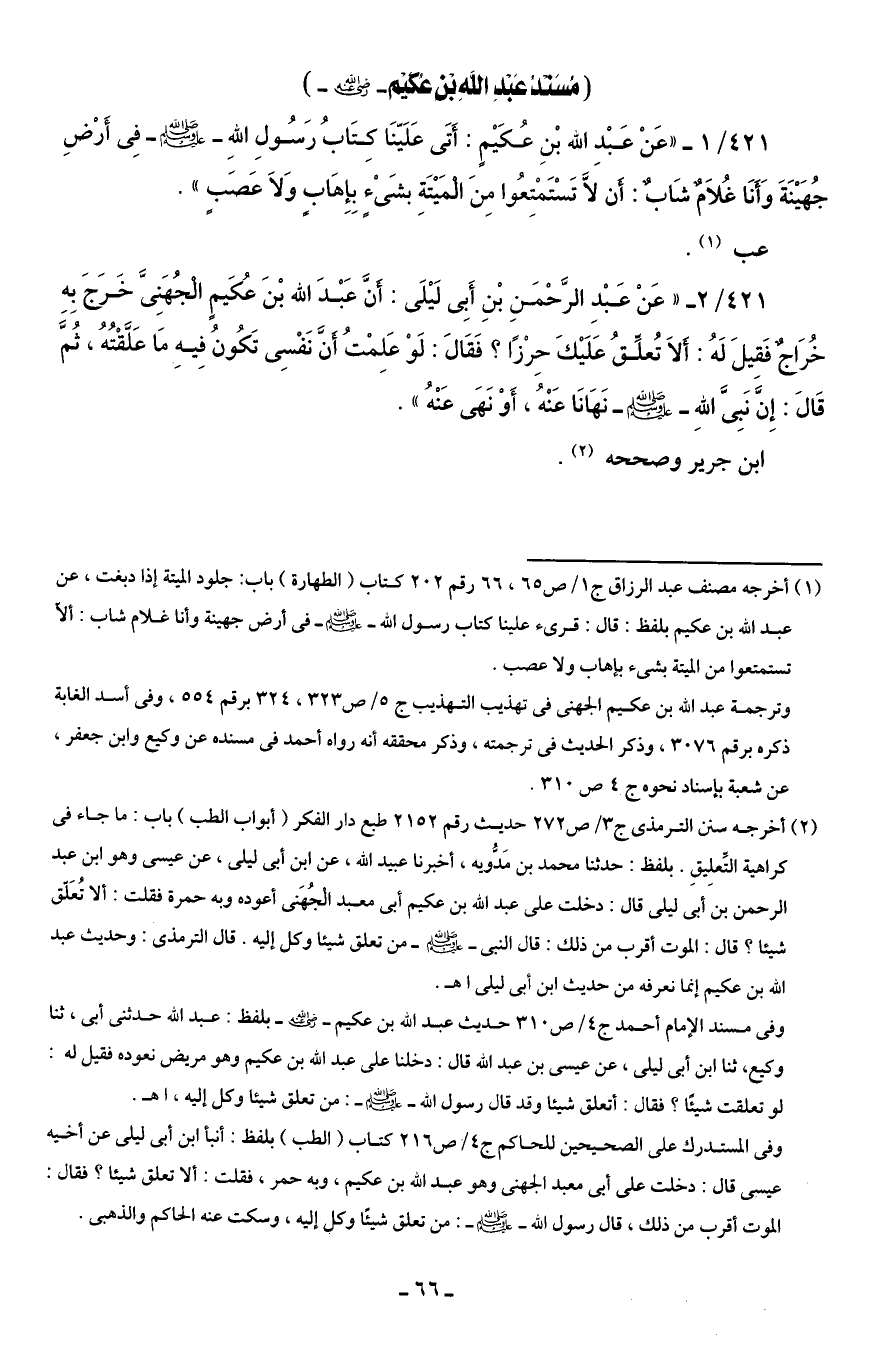 ( مُسْنَدُ عَبْدِ اللَّهِ بْنِ عُكَيْمٍ - رضي الله عنه - )
٤٢١/ ١ - «عَنْ عَبْدِ الله بْنِ عُكَيْمٍ : أَتَى عَلَيْنَا كِتَابُ رَسُولِ الله - ﷺ - فِى أَرْضِ
جُهَيْنَةَ وَأَنَا غُلَامٌ شَابٌ : أَن لاَّ تَسْتَمْتِعُوا مِنَ الْمَيْتَةِ بِشَىْءٍ بِإِهَابٍ وَلاَ عَصَبٍ » .
عب (١) .
٤٢١/ ٢- « عَنْ عَبْدِ الرَّحْمَنِ بْنِ أَبِى لَيْلَى : أَنَّ عَبْدَ الله بْنَ عُكَيمٍ الْجُهَنِىَّ خَرَجَ بِهِ
خُرَاجٌ فَقِيلَ لَهُ : أَلاَ تُعلِّقُ عَلَيْكَ حِرْزًا ؟ فَقَالَ : لَوْ عَلِمْتُ أَنَّ نَفْسِى تَكُونُ فِيهِ مَا عَلَّقْتُهُ ، ثُمَّ
قَالَ : إِنَّ نَبِىَّ اللهِ - ﷺ - نَهَانَا عَنْهُ ، أَوْ نَهَى عَنْهُ » .
ابن جرير وصححه (٢) .
(١) أخرجه مصنف عبد الرزاق ج١/ ص٦٥ ، ٦٦ رقم ٢٠٢ كتاب ( الطهارة ) باب: جلود الميتة إذا دبغت ، عن
عبد الله بن عكيم بلفظ : قال : قرىء علينا كتاب رسول الله - ﷺ - فى أرض جهينة وأنا غلام شاب : ألاّ
تستمتعوا من الميتة بشىء بإهاب ولا عصب .
وترجمة عبد الله بن عكيم الجهنى فى تهذيب التهذيب ج ٥/ ص٣٢٣ ، ٣٢٤ برقم ٥٥٤ ، وفى أسد الغابة
ذكره برقم ٣٠٧٦ ، وذكر الحديث فى ترجمته ، وذكر محققه أنه رواه أحمد فى مسنده عن وكيع وابن جعفر ،
عن شعبة بإسناد نحوه ج ٤ ص ٣١٠ .
(٢) أخرجه سنن الترمذى ج٣/ ص٢٧٢ حديث رقم ٢١٥٢ طبع دار الفكر ( أبواب الطب ) باب : ما جاء فى
كراهية التَّعليقِ . بلفظ : حدثنا محمد بن مَدُّويه ، أخبرنا عبيد الله ، عن ابن أبى ليلى ، عن عيسى وهو ابن عبد
الرحمن بن أبى ليلى قال : دخلت على عبد الله بن عكيم أبى معبد الجُهَنى أعوده وبه حمرة فقلت : ألا تُعَلّق
شيئا ؟ قال : الموت أقرب من ذلك : قال النبى - ﷺ - من تعلق شيئا وكل إليه . قال الترمذى : وحديث عبد
الله بن عكيم إنما نعرفه من حديث ابن أبى ليلى ا هـ .
وفى مسند الإمام أحمد ج٤/ ص٣١٠ حديث عبد الله بن عكيم - رضي الله عنه - بلفظ : عبد الله حدثنى أبى ، ثنا
وكيع، ثنا ابن أبى ليلى ، عن عيسى بن عبد الله قال : دخلنا على عبد الله بن عكيم وهو مريض نعوده فقيل له :
لو تعلقت شيئًا ؟ فقال : أتعلق شيئا وقد قال رسول الله - ﷺ - : من تعلق شيئا وكل إليه ، ا هـ .
وفى المستدرك على الصحيحين للحاكم ج٤/ ص٢١٦ كتاب ( الطب ) بلفظ : أنبأ ابن أبى ليلى عن أخيه
عيسى قال : دخلت على أبى معبد الجهنى وهو عبد الله بن عكيم ، وبه حمر ، فقلت : ألا تعلق شيئا ؟ فقال :
الموت أقرب من ذلك ، قال رسول الله - ﷺ - : من تعلق شيئًا وكل إليه ، وسكت عنه الحاكم والذهبى .
- ٦٦ -